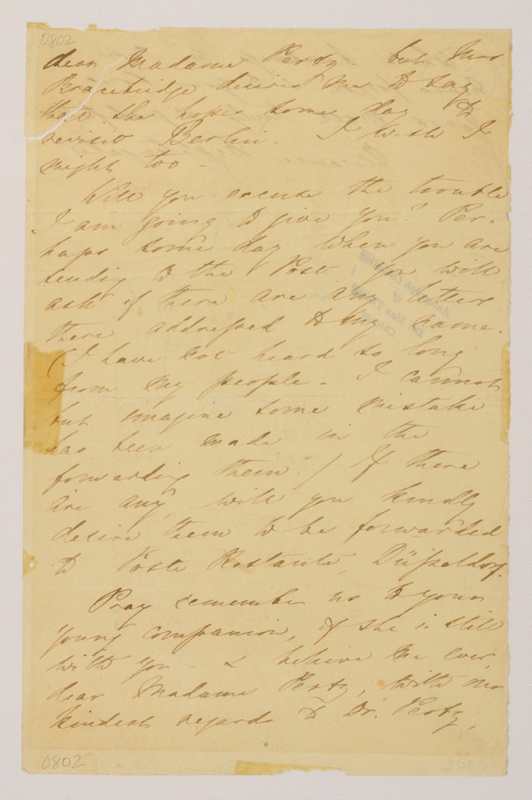 0802
dear Madame Pertz, but Mrs
Bracebridge desires me to say
that she hopes some day to
revisit Berlin. I wish I
might too.
Will you excuse the trouble
I am going to give you? Per-
haps some day when you are
sending to the Post you will
ask if there are any letters
there addressed to my name.
(I have not heard so long
from my people. I cannot
but imagine some mistake
has been made in the
forwarding them.) If there
are any, will you kindly
desire them to be forwarded
to Poste Restante, Düsseldorf.
Pray remember us to your
young companion, if she is still
with you & believe me ever,
dear Madame Pertz, with my
kindest regards to Dr. Pertz,
0802